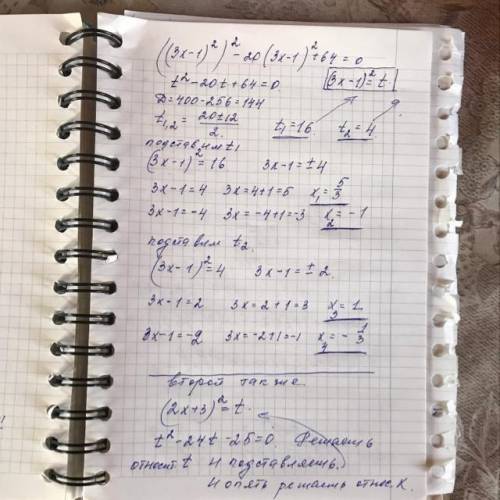 ((3x-1)²)² - 20(3x-1)² + 64 = 0
t² - 20t + 64 = 0 (3x-1)² = t
D = 400 - 256 = 144
t₁,₂ = (20±12)/2 t₁ = 16 t₂ = 4
подставим t₁
(3x-1)² = 16 3x-1 = ±4
3x-1 = 4 3x = 4+1 = 5 x₁ = 5/3
3x-1 = -4 3x = -4+1 = -3 x₂ = -1
подставим t₂
(3x-1)² = 4 3x-1 = ±2
3x-1 = 2 3x = 2+1 = 3 x₃ = 1
3x-1 = -2 3x = -2+1 = -1 x₄ = -1/3
второй так же
(2x+3)² = t
t² - 24t - 25 = 0 Решаешь
относит t и подставляешь.
И опять решаешь относ. x.